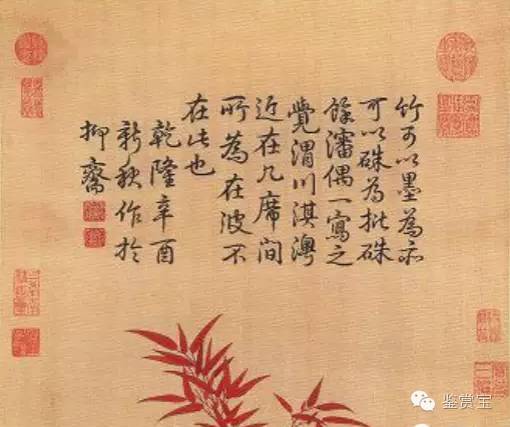 竹可以墨為亦
可以硃為批硃
餘瀋偶一寫之
覺渭川淇澳
近在几席間
所為在彼不
在此也
乾隆辛酉
新秋作於
抑齋
鉴赏宝